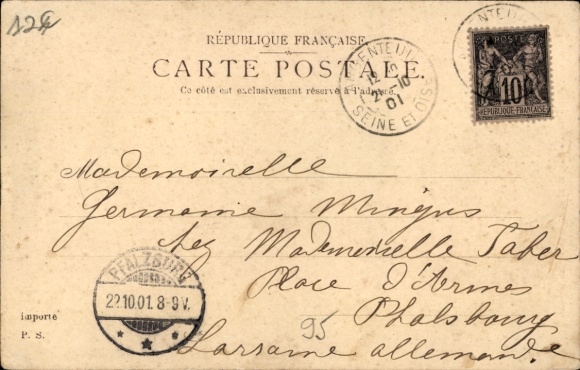 124
RÉPUBLIQUE FRANÇAISE
CARTE POSTALE.
Ce côté est exclusivement réservé à l'adresse.
ARGENTEUIL
12 10
2 -10
01
SEINE ET OISE
POSTE
10
REPUBLIQUE FRANÇAISE
Mademoiselle
Germaine Mingus
chez Mademoiselle Taber
Place d'Armes
Phalsbourg
Lorraine allemande.
95
PFALZBURG
22.10.01.8-9V.
importé
P. S.